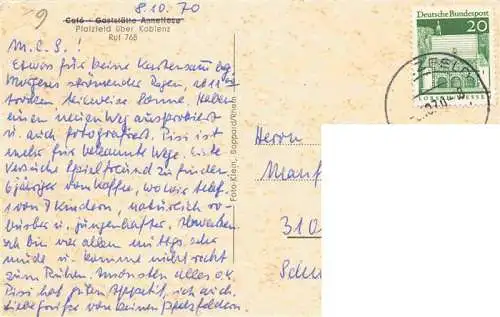 8.10.70
Café - Gaststätte Anneliese
Pfalzfeld über Koblenz
Ruf 765
M. C. S. !
Etwas für Deine Kartensammlg
Morgens strömender Regen, ab 11°°
trocken teilweise Sonne. Haben
einen neuen Weg ausprobiert
u. auch fotografiert. Pissi ist
mehr für bekannte Wege. Erste
Versuche Spielfreund zu finden
6jähriger vom Kaffee, wo wir telef.
von 7 Kindern, natürlich
u. jungenhafter.
Ich bin vor allem mittgs. sehr
müde u. komme nicht recht
zum Ruhen. Ansonsten alles o.k.
Pissi hat guten Appetit, ich auch.
Liebe Grüße von Deinen Pfalzfeldern.
Foto-Klein, Boppard/Rhein
Deutsche Bundespost
20
Herrn
Manf
310